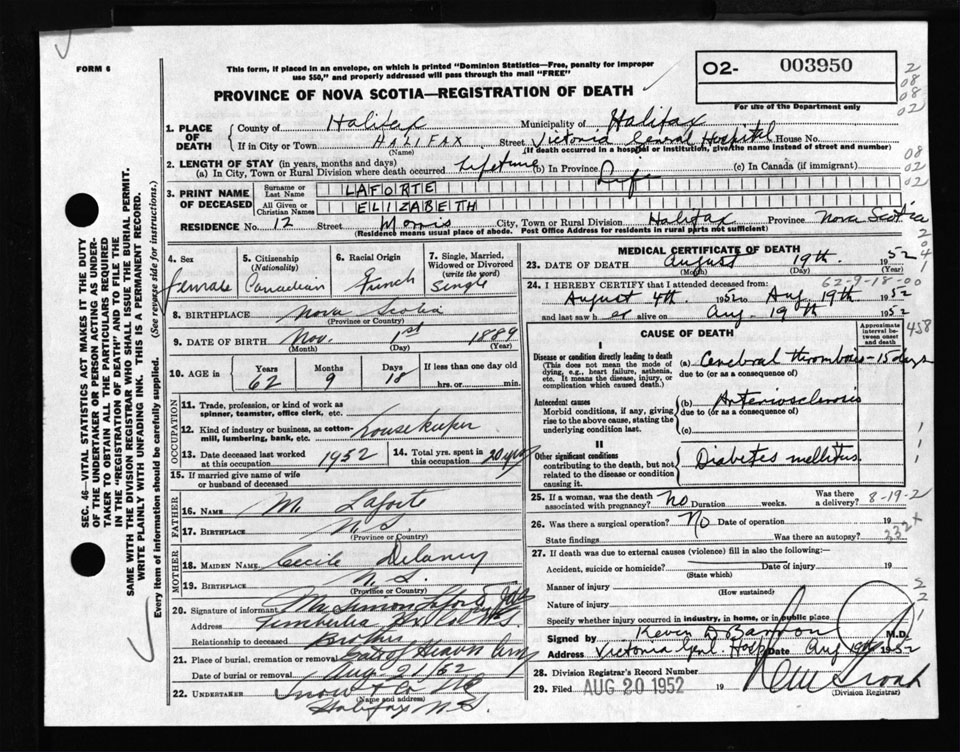 FORM 6
This form, if placed in an envelope, on which is printed "Dominion Statistics—Free, penalty for improper
use $50," and properly addressed will pass through the mail "FREE"
O2- 003950
For use of the Department only
PROVINCE OF NOVA SCOTIA—REGISTRATION OF DEATH
1. PLACE OF DEATH
County of Halifax Municipality of Halifax
If in City or Town HALIFAX Street Victoria General Hospital House No.
(Name) (If death occurred in a hospital or institution, give the name instead of street and number)
2. LENGTH OF STAY (in years, months and days)
(a) In City, Town or Rural Division where death occurred lifetime (b) In Province Life (c) In Canada (if immigrant)
3. PRINT NAME OF DECEASED
Surname or Last Name LAFORTE
All Given or Christian Names ELIZABETH
RESIDENCE No. 12 Street Morris City, Town or Rural Division Halifax Province Nova Scotia
(Residence means usual place of abode. Post Office Address for residents in rural parts not sufficient)
SEC. 46—VITAL STATISTICS ACT MAKES IT THE DUTY
OF THE UNDERTAKER OR PERSON ACTING AS UNDER-
TAKER TO OBTAIN ALL THE PARTICULARS REQUIRED
IN THE "REGISTRATION OF DEATH" AND TO FILE THE
SAME WITH THE DIVISION REGISTRAR WHO SHALL ISSUE THE BURIAL PERMIT.
WRITE PLAINLY WITH UNFADING INK. THIS IS A PERMANENT RECORD.
Every item of information should be carefully supplied. (See reverse side for instructions.)
4. Sex Female
5. Citizenship (Nationality) Canadian
6. Racial Origin French
7. Single, Married, Widowed or Divorced (write the word) Single
8. BIRTHPLACE Nova Scotia
(Province or Country)
9. DATE OF BIRTH Nov. 1st 1889
(Month) (Day) (Year)
10. AGE in Years 62 Months 9 Days 18 If less than one day old hrs. or min.
OCCUPATION
11. Trade, profession or kind of work as
spinner, teamster, office clerk, etc.
12. Kind of industry or business, as cotton-
mill, lumbering, bank, etc. housekeeper
13. Date deceased last worked at this occupation 1952
14. Total yrs. spent in this occupation 20 yrs
15. If married give name of wife
or husband of deceased
FATHER
16. NAME M. Laforte
17. BIRTHPLACE N.S.
(Province or Country)
MOTHER
18. MAIDEN NAME Cecile Delaney
19. BIRTHPLACE N.S.
(Province or Country)
20. Signature of informant Mr Simon Laforte
Address Timberlea Hx Co. N.S.
Relationship to deceased Brother
21. Place of burial, cremation or removal Gate of Heaven
Date of burial or removal Aug 21/52
22. UNDERTAKER Snow & Co
(Name and address)
Halifax N.S.
MEDICAL CERTIFICATE OF DEATH
23. DATE OF DEATH August 19th. 1952
(Month) (Day) (Year)
62-9-18-00
24. I HEREBY CERTIFY that I attended deceased from:
August 4th. 1952 to Aug 19th 1952
and last saw her alive on Aug. 19th 1952
CAUSE OF DEATH
Approximate interval between onset and death
458
I
Disease or condition directly leading to death (a) Cerebral thrombosis - 15 days
(This does not mean the mode of dying, e.g., heart failure, asthenia, etc. It means the disease, injury, or complication which caused death.)
due to (or as a consequence of)
Antecedent causes (b) Arteriosclerosis
Morbid conditions, if any, giving rise to the above cause, stating the underlying condition last.
due to (or as a consequence of)
(c)
II
Other significant conditions Diabetes mellitus.
contributing to the death, but not related to the disease or condition causing it.
25. If a woman, was the death associated with pregnancy? No Duration weeks. Was there a delivery? 8-19-2
26. Was there a surgical operation? No Date of operation 19
State findings Was there an autopsy? 332X
27. If death was due to external causes (violence) fill in also the following:—
Accident, suicide or homicide? Date of injury 19
(State which)
Manner of injury
(How sustained)
Nature of injury
Specify whether injury occurred in industry, in home, or in public place
Signed by Kevin D Barron M.D.
Address Victoria Genl. Hosp Date Aug 19th 1952
28. Division Registrar's Record Number
29. Filed AUG 20 1952 19
(Division Registrar)